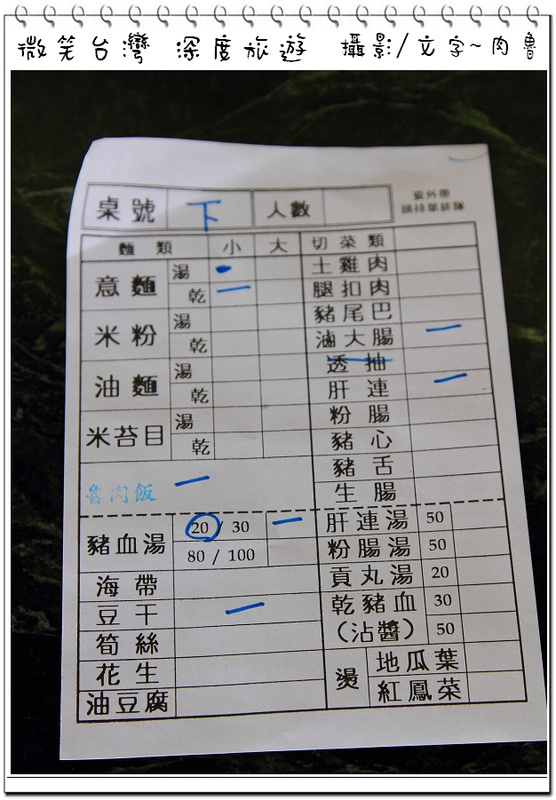 微笑台灣 深度旅遊 攝影/文字~肉魯
桌號 下 人數
要外帶
請持單排隊
麵類 小 大 切菜類
意麵 湯
乾 一
米粉 湯
乾
油麵 湯
乾
米苔目 湯
乾
魯肉飯 一
土雞肉
腿扣肉
豬尾巴
滷大腸 一
透抽
肝連 一
粉腸
豬心
豬舌
生腸
豬血湯 20 / 30 一
80 / 100
海帶
豆干 一
筍絲
花生
油豆腐
肝連湯 50
粉腸湯 50
貢丸湯 20
乾豬血 30
(沾醬) 50
燙 地瓜葉
紅鳳菜